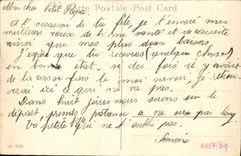 Mon cher Petit Papa
Postale Post Card
A l'occasion de ta fête, je t'envoie mes
meilleurs vœux de bonne santé et
ainsi que mes plus doux baisers.
J'espère que tu recevras (quelque chose)
en bon état, si des fois il y avait
de la casse fais le moi savoir, je
ici ce qui n'a pas
Dans huit jours nous serons sur le
départ prends patience ce ne sera pas long
Ta petite qui ne t'oublie pas.
Simone